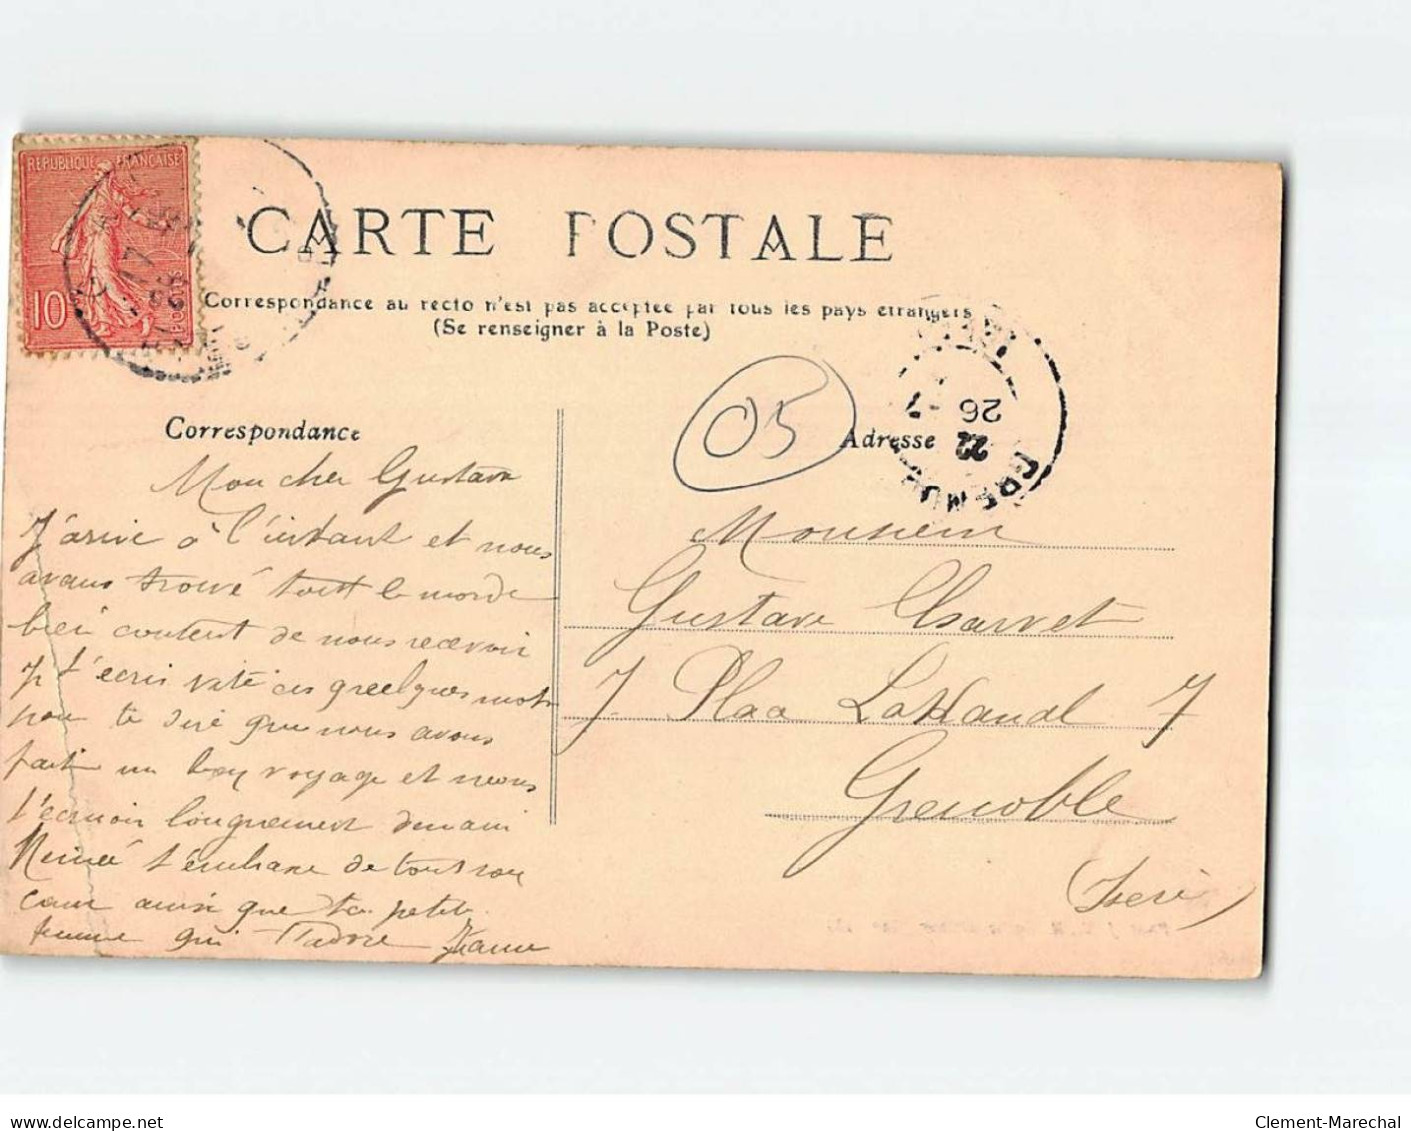 REPUBLIQUE FRANÇAISE
10
POSTES
CARTE POSTALE
Correspondance au recto n'est pas acceptée par tous les pays étrangers
(Se renseigner à la Poste)
05
Correspondance
Adresse
26
22
Mon cher Gustave
J'arive à l'instant et nous
avons trouvé tout le monde
bien content de nous recevoir
Je t'écris vite ces quelques mots
pour te dire que nous avons
fait un bon voyage et nous
t'écrirons longuement demain
t'embrasse de tout son
cœur ainsi que ta petite
femme qui t'adore Jeanne
Monsieur
Gustave Charvet
7 Place Lavalette 7
Grenoble
(Isère)
Clement-Marechal